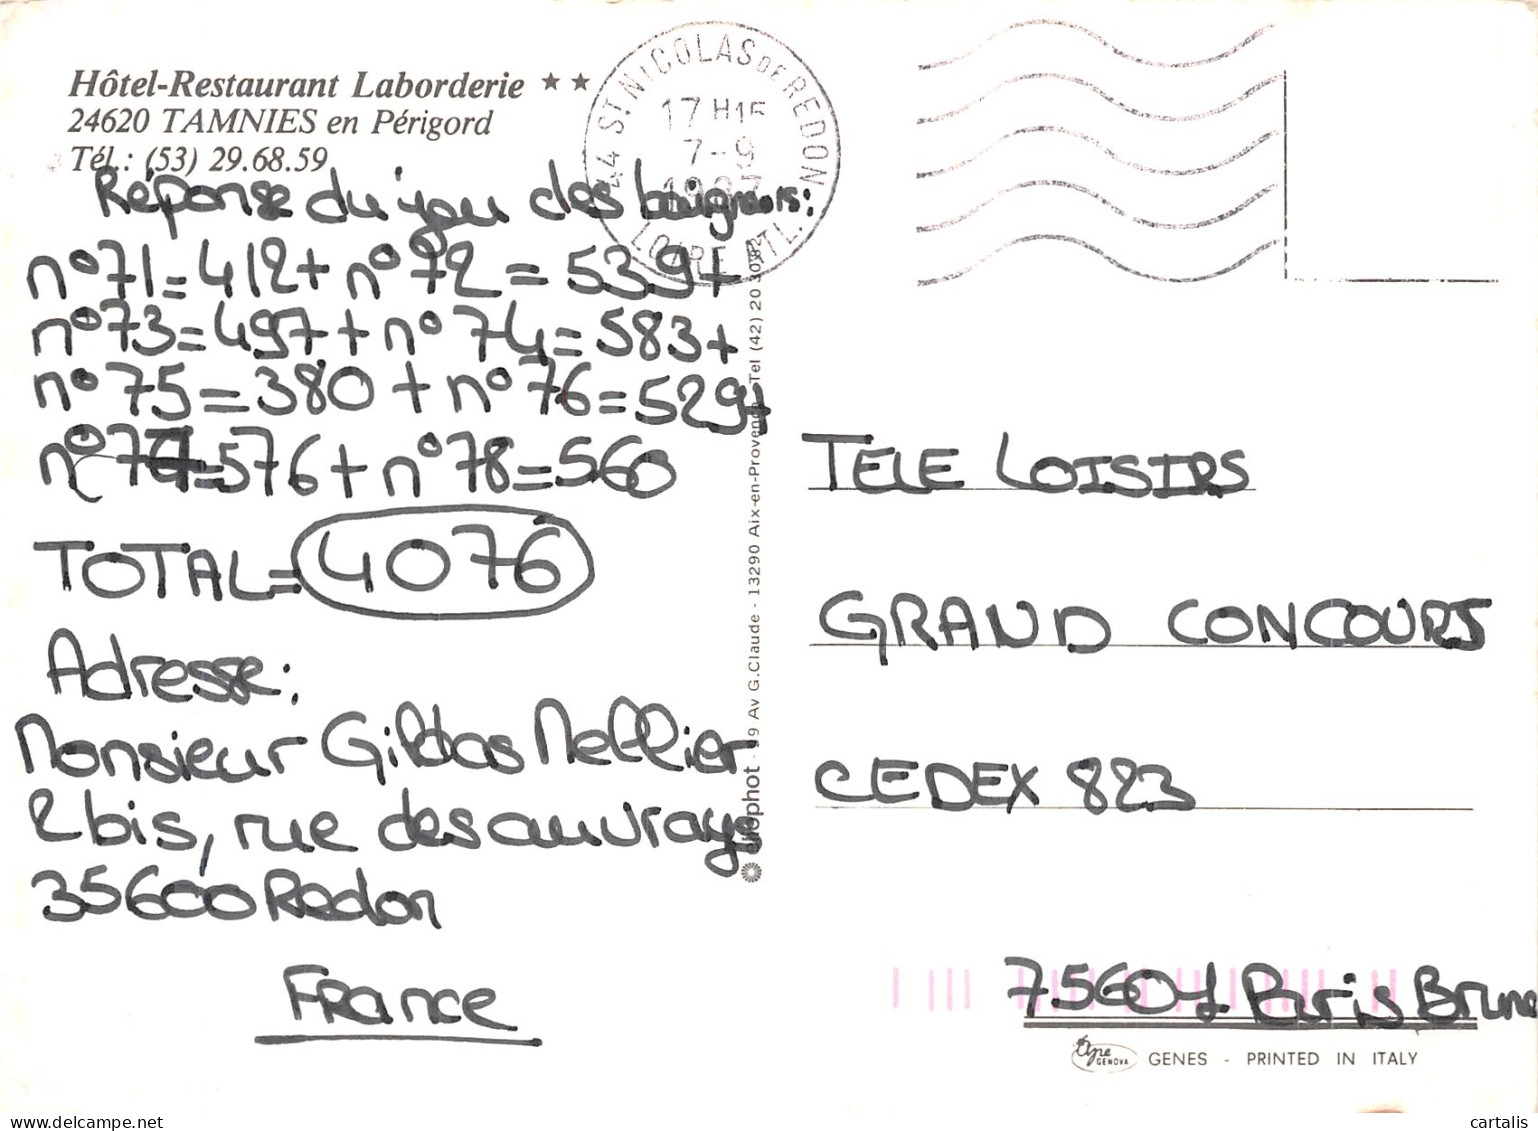 Hôtel-Restaurant Laborderie ★★
24620 TAMNIES en Périgord
Tél.: (53) 29.68.59
44 ST. NICOLAS DE REDON
17 H15
7--9
LOIRE ATL.
Réponse du jeu des baigneurs:
n°71=412+ n°72=539+
n°73=497+ n°74=583+
n°75=380+n°76=529+
n°77=576+n°78=560
TOTAL=4076
Adresse:
Monsieur Gildas Mellier
2bis, rue des auvrays
35600 Redon
France
9 Av G.Claude - 13290 Aix-en-Provence Tel (42) 20
TELE LOISIRS
GRAND CONCOURS
CEDEX 823
75601 Paris Brune
GENOVA GENES - PRINTED IN ITALY
cartalis